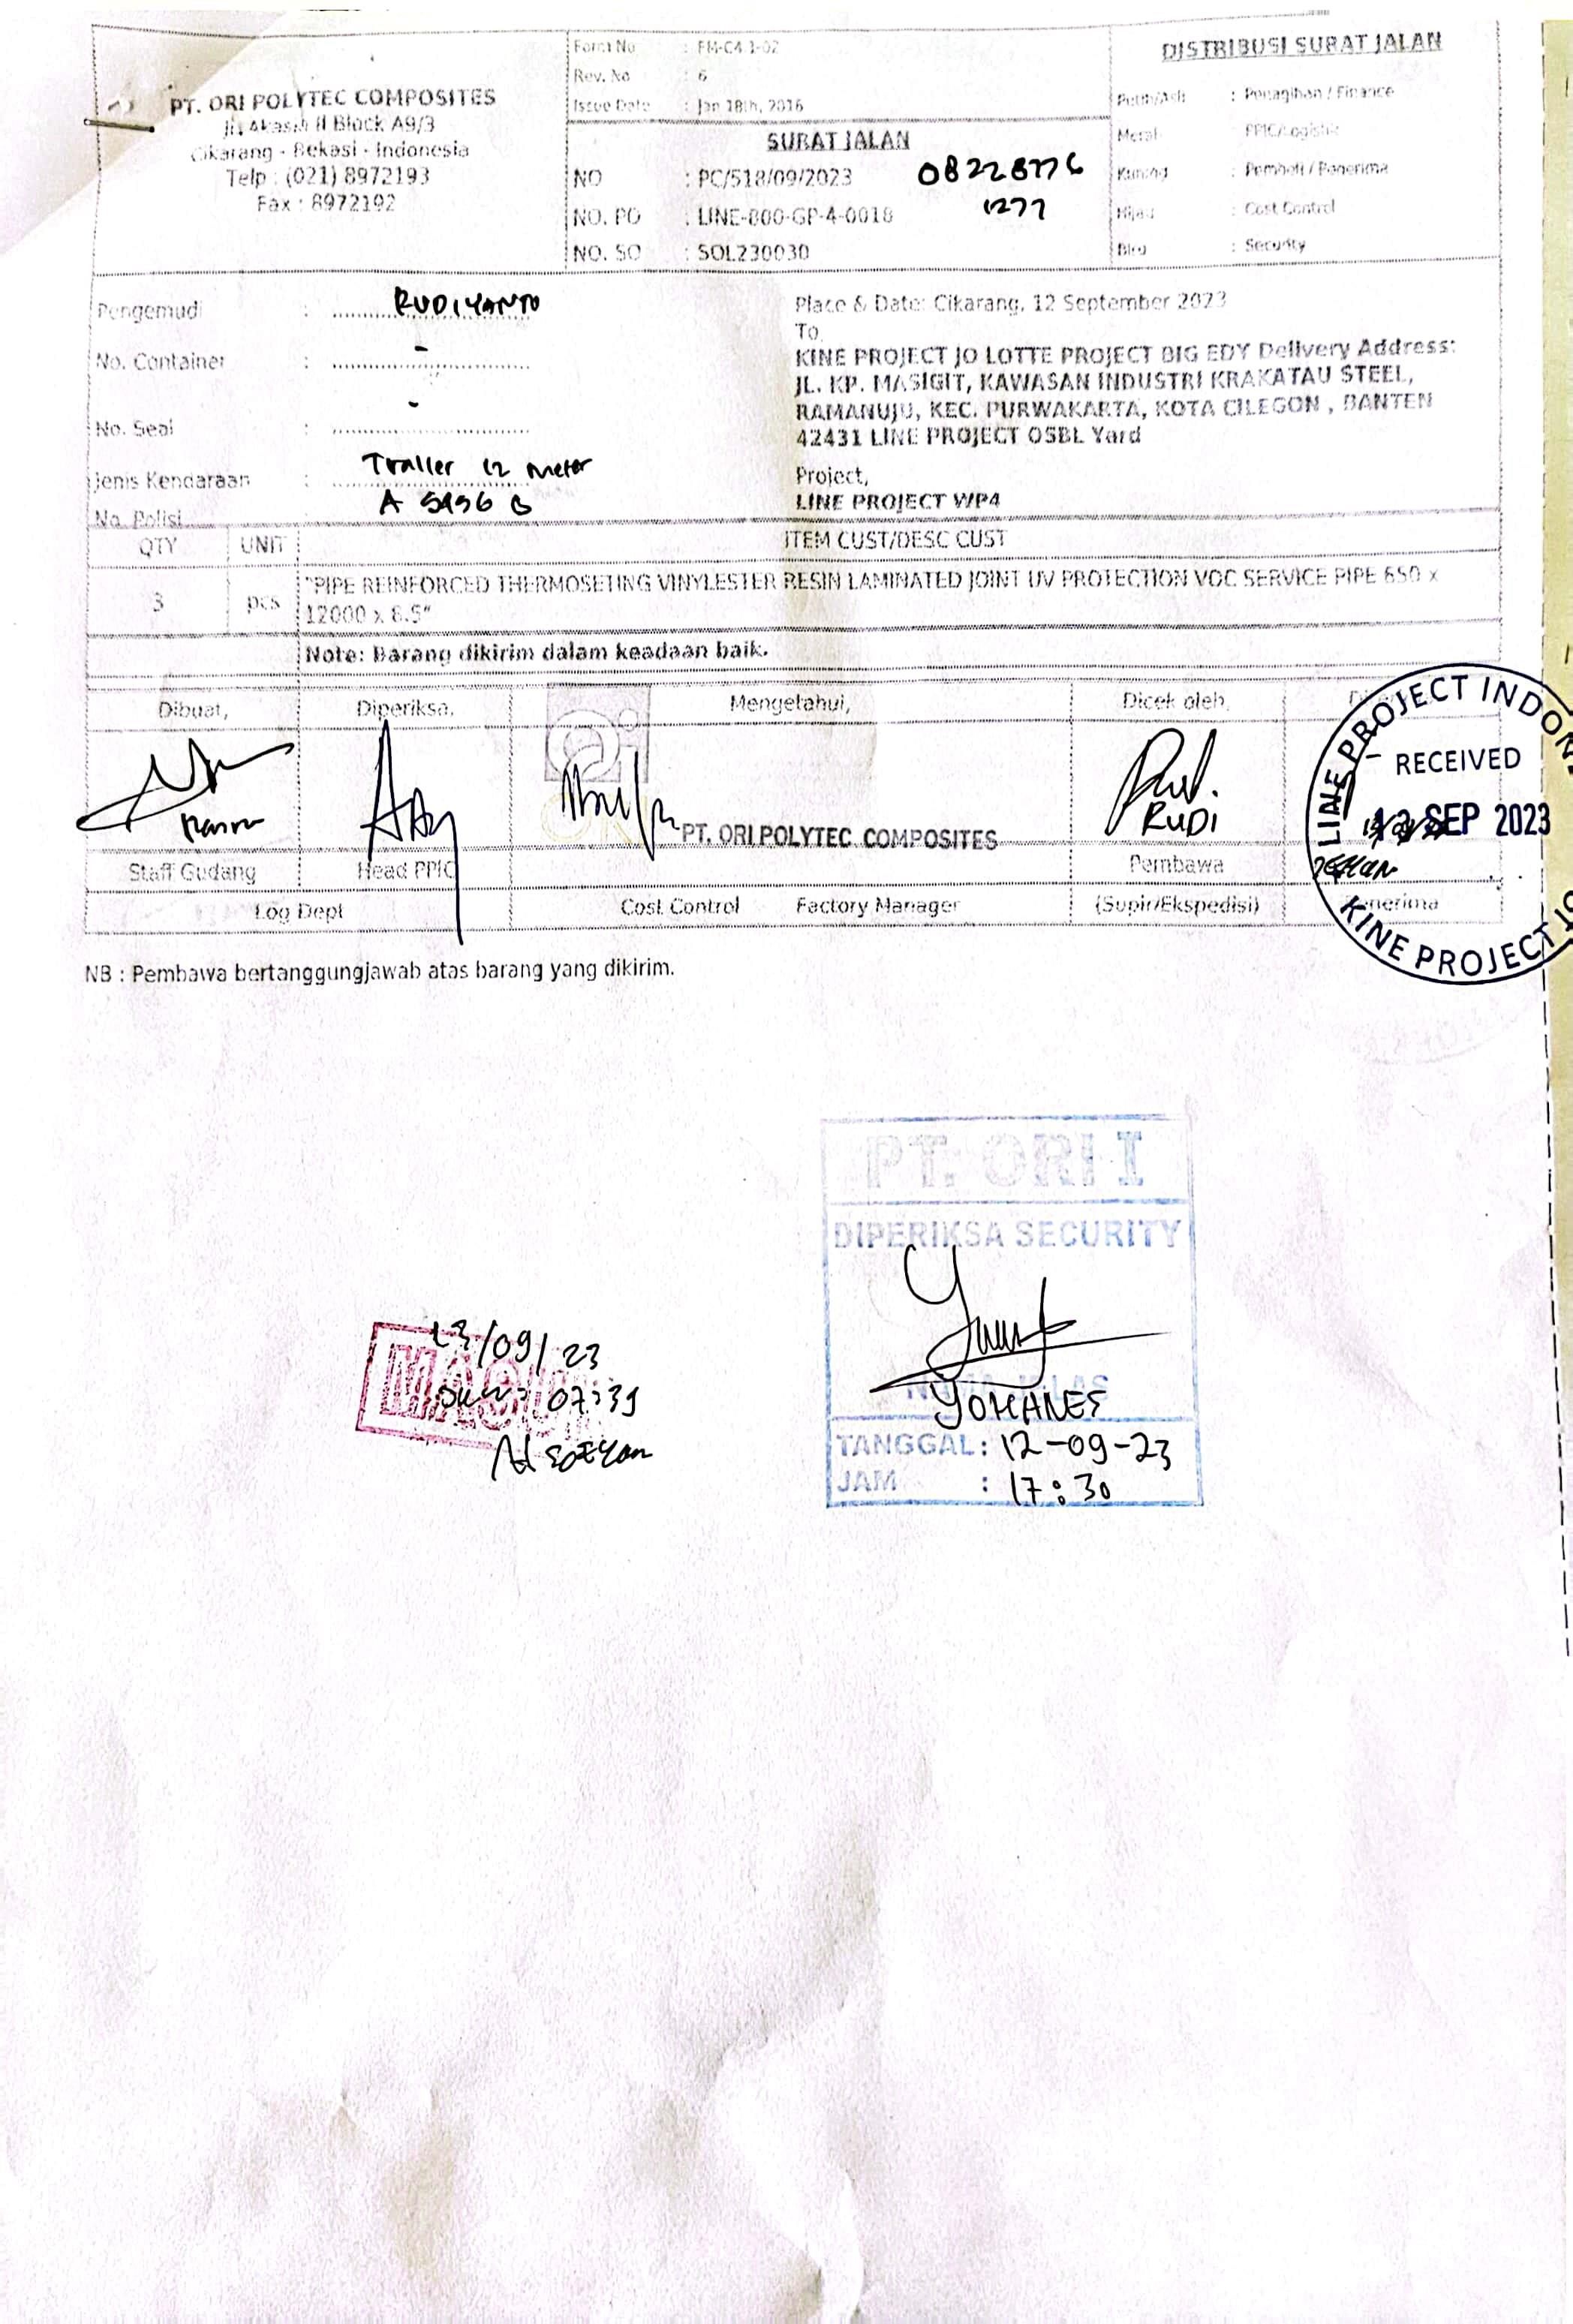 PT. ORI POLYTEC COMPOSITES
Jl. Akasia II Block A9/3
Cikarang - Bekasi - Indonesia
Telp : (021) 8972193
Fax : 8972192
Form No : FM-C4.1-02
Rev. No : 6
Issue Date : Jan 18th, 2016
SURAT JALAN
NO : PC/518/09/2023
08228776
1277
NO. PO : LINE-800-GP-4-0018
NO. SO : SOL230030
DISTRIBUSI SURAT JALAN
Putih/Asli : Penagihan / Finance
Merah : PPIC/Logistik
Kuning : Pembeli / Penerima
Hijau : Cost Control
Biru : Security
Pengemudi : RUDIYANTO
No. Container : -
No. Seal : -
Jenis Kendaraan : Trailer 12 meter
No. Polisi A 5496 B
Place & Date: Cikarang, 12 September 2023
To,
KINE PROJECT JO LOTTE PROJECT BIG EDY Delivery Address:
JL. KP. MASIGIT, KAWASAN INDUSTRI KRAKATAU STEEL,
RAMANUJU, KEC. PURWAKARTA, KOTA CILEGON , BANTEN
42431 LINE PROJECT OSBL Yard
Project,
LINE PROJECT WP4
QTY UNIT ITEM CUST/DESC CUST
3 pcs "PIPE REINFORCED THERMOSETING VINYLESTER RESIN LAMINATED JOINT UV PROTECTION VOC SERVICE PIPE 650 x
12000 x 8.5"
Note: Barang dikirim dalam keadaan baik.
Dibuat, Diperiksa, Mengetahui, Dicek oleh,
RUDI
PT. ORI POLYTEC COMPOSITES
Staff Gudang Head PPIC Pembawa
Log Dept Cost Control Factory Manager (Supir/Ekspedisi) Penerima
LINE PROJECT INDON
RECEIVED
13 SEP 2023
KINE PROJECT JO
NB : Pembawa bertanggungjawab atas barang yang dikirim.
PT. ORI I
DIPERIKSA SECURITY
YOHANES
TANGGAL: 12-09-23
JAM : 17:30
MASUK
13/09/23
07:39